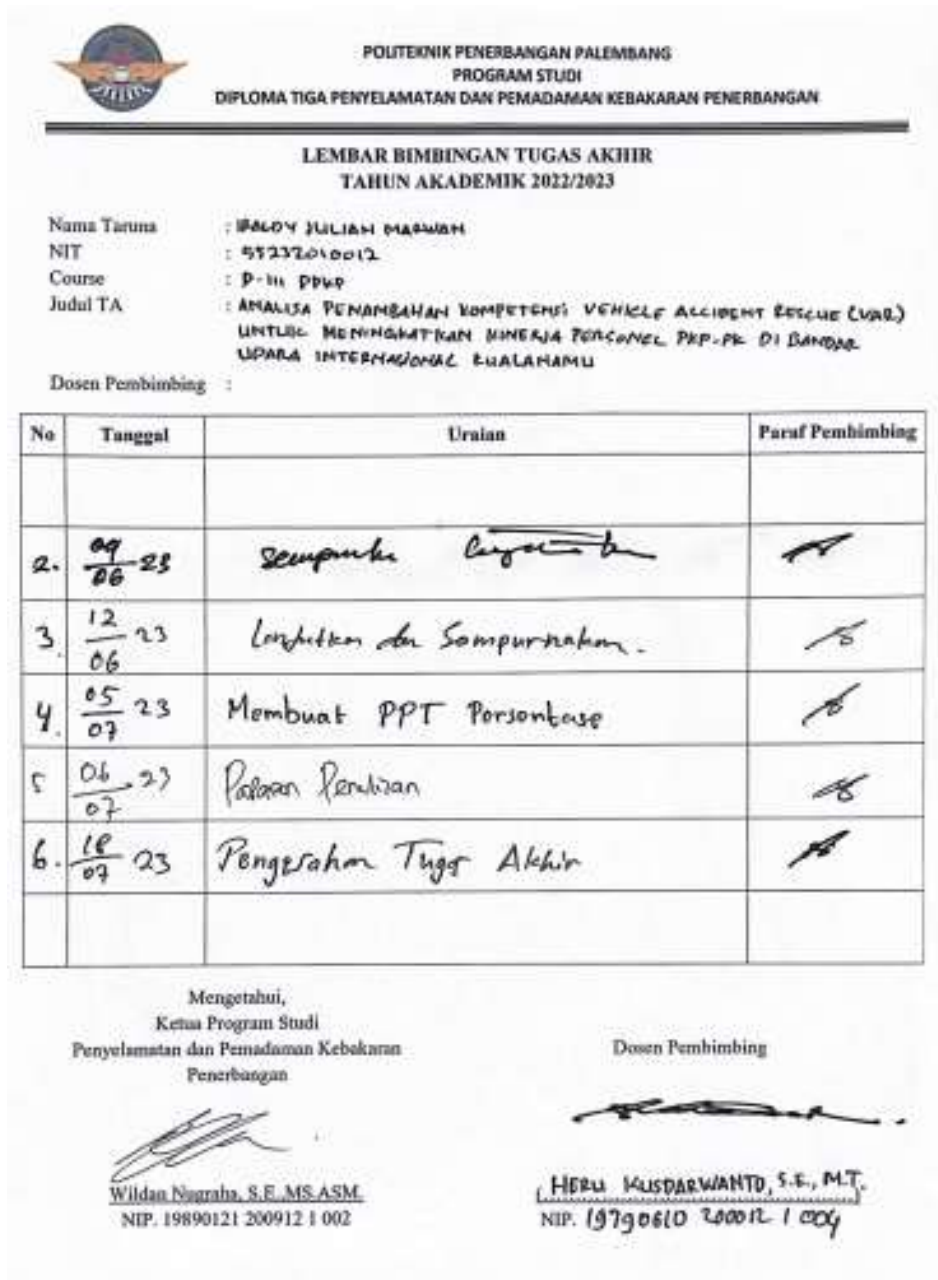 POLITEKNIK PENERBANGAN PALEMBANG
PROGRAM STUDI
DIPLOMA TIGA PENYELAMATAN DAN PEMADAMAN KEBAKARAN PENERBANGAN
LEMBAR BIMBINGAN TUGAS AKHIR
TAHUN AKADEMIK 2022/2023
Nama Taruna : JULIAN MARWAN
NIT : 55232010012
Course : D-III PPKP
Judul TA : ANALISA PENAMBAHAN KOMPETENSI VEHICLE ACCIDENT RESCUE (VAR)
UNTUK MENINGKATKAN KINERJA PERSONEL PKP-PK DI BANDAR
UDARA INTERNASIONAL KUALANAMU
Dosen Pembimbing :
No Tanggal Uraian Paraf Pembimbing
2. 09/06 23
3. 12/06 23 Lanjutkan dan Sempurnakan.
4. 05/07 23 Membuat PPT Persentase
5 06/07 23
6. 18/07 23 Pengesahan Tugas Akhir
Mengetahui,
Ketua Program Studi
Penyelamatan dan Pemadaman Kebakaran
Penerbangan
Dosen Pembimbing
Wildan Nugraha, S.E.,MS.ASM.
NIP. 19890121 200912 1 002
(HERU KUSDARWANTO, S.E., M.T.
NIP. 19790610 200012 1 004